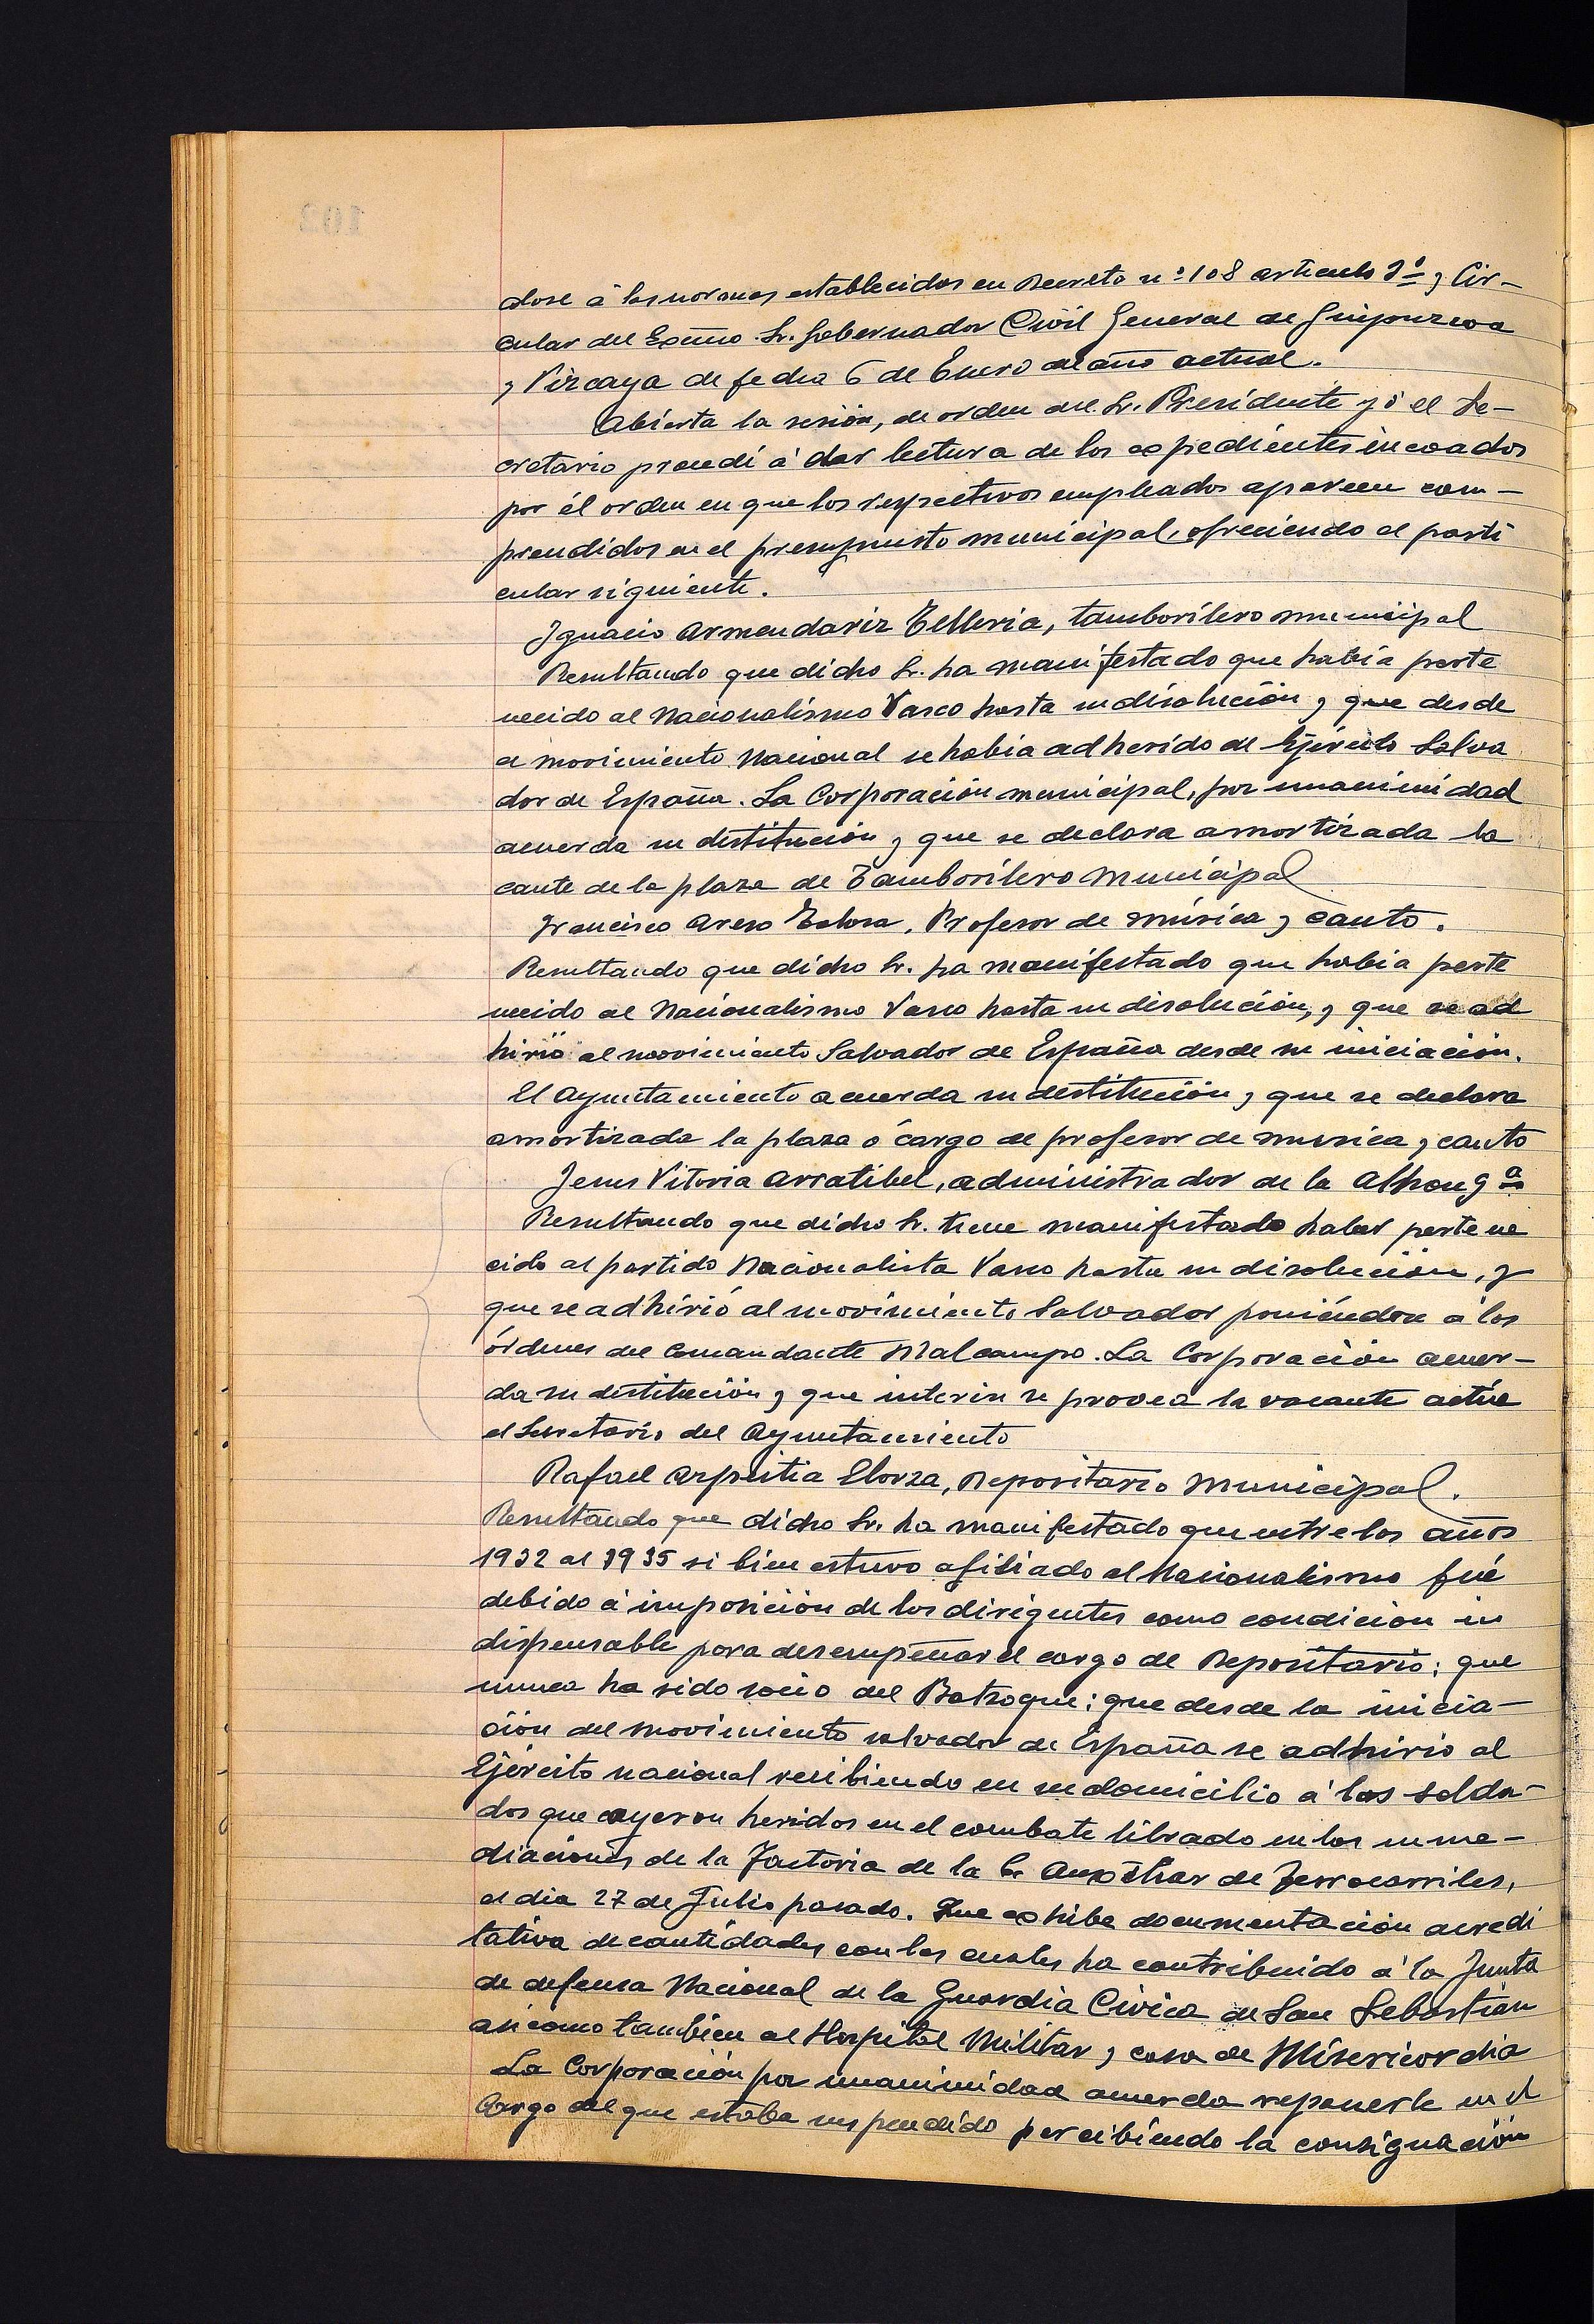 102
dose á las normas establecidas en Decreto nº 108 articulo 3º y Cir-
cular del Excmo. Sr. Gobernador Civil General de Guipuzcoa
y Vizcaya de fecha 6 de Enero del año actual.
Abierta la sesión, de orden del Sr. Presidente yó el Se-
cretario procedí á dar lectura de los expedientes incoados
por él orden en que los respectivos empleados aparecen com-
prendidos en el presupuesto municipal, ofreciendo el parti
cular siguiente.
Ignacio Armendariz Telleria, tamborilero municipal
Resultando que dicho Sr. ha manifestado que había perte
necido al Nacionalismo Vasco hasta su disolución y que desde
el movimiento Nacional se habia adherido al Ejército Salva
dor de España. La Corporación municipal, por unanimidad
acuerda su destitución y que se declara amortizada la
cante de la plaza de Tamborilero Municipal
Francisco Areso Tolosa, Profesor de música y canto.
Resultando que dicho Sr. ha manifestado que habia perte
necido al Nacionalismo Vasco hasta su disolución, y que se ad
hirió al movimiento Salvador de España desde su iniciación.
El Ayuntamiento acuerda su destitución y que se declara
amortizada la plaza ó cargo de profesor de musica y canto
Jesus Vitoria Arratibel, administrador de la Alhongª
Resultando que dicho Sr. tiene manifestado haber pertene
cido al partido Nacionalista Vasco hasta su disolución, y
que se adhirió al movimiento Salvador poniéndose a los
órdenes del Comandante Malcampo. La Corporación acuer-
da su destitución y que interin se provea la vacante actúe
el Secretario del Ayuntamiento
Rafael Azpeitia Elorza, Depositario Municipal.
Resultando que dicho Sr. ha manifestado que entre los años
1932 al 1935 si bien estuvo afiliado al Nacionalismo fué
debido á imposición de los dirigentes como condición in
dispensable para desempeñar el cargo de Depositario; que
nunca ha sido socio del Batzoqui; que desde la inicia-
ción del movimiento salvador de España se adhirió al
Ejército nacional recibiendo en su domicilio á los solda-
dos que cayeron heridos en el combate librado en las inme-
diaciones de la Factoria de la Cª Auxiliar de Ferrocarriles,
el dia 27 de Julio pasado. Que exhibe documentación acredi
tativa de cantidades con las cuales ha contribuido á la Junta
de defensa Nacional de la Guardia Civica de San Sebastian
asi como tambien al Hospital Militar y casa de Misericordia
La Corporación por unanimidad acuerda reponerle en el
Cargo del que estaba suspendido percibiendo la consignación